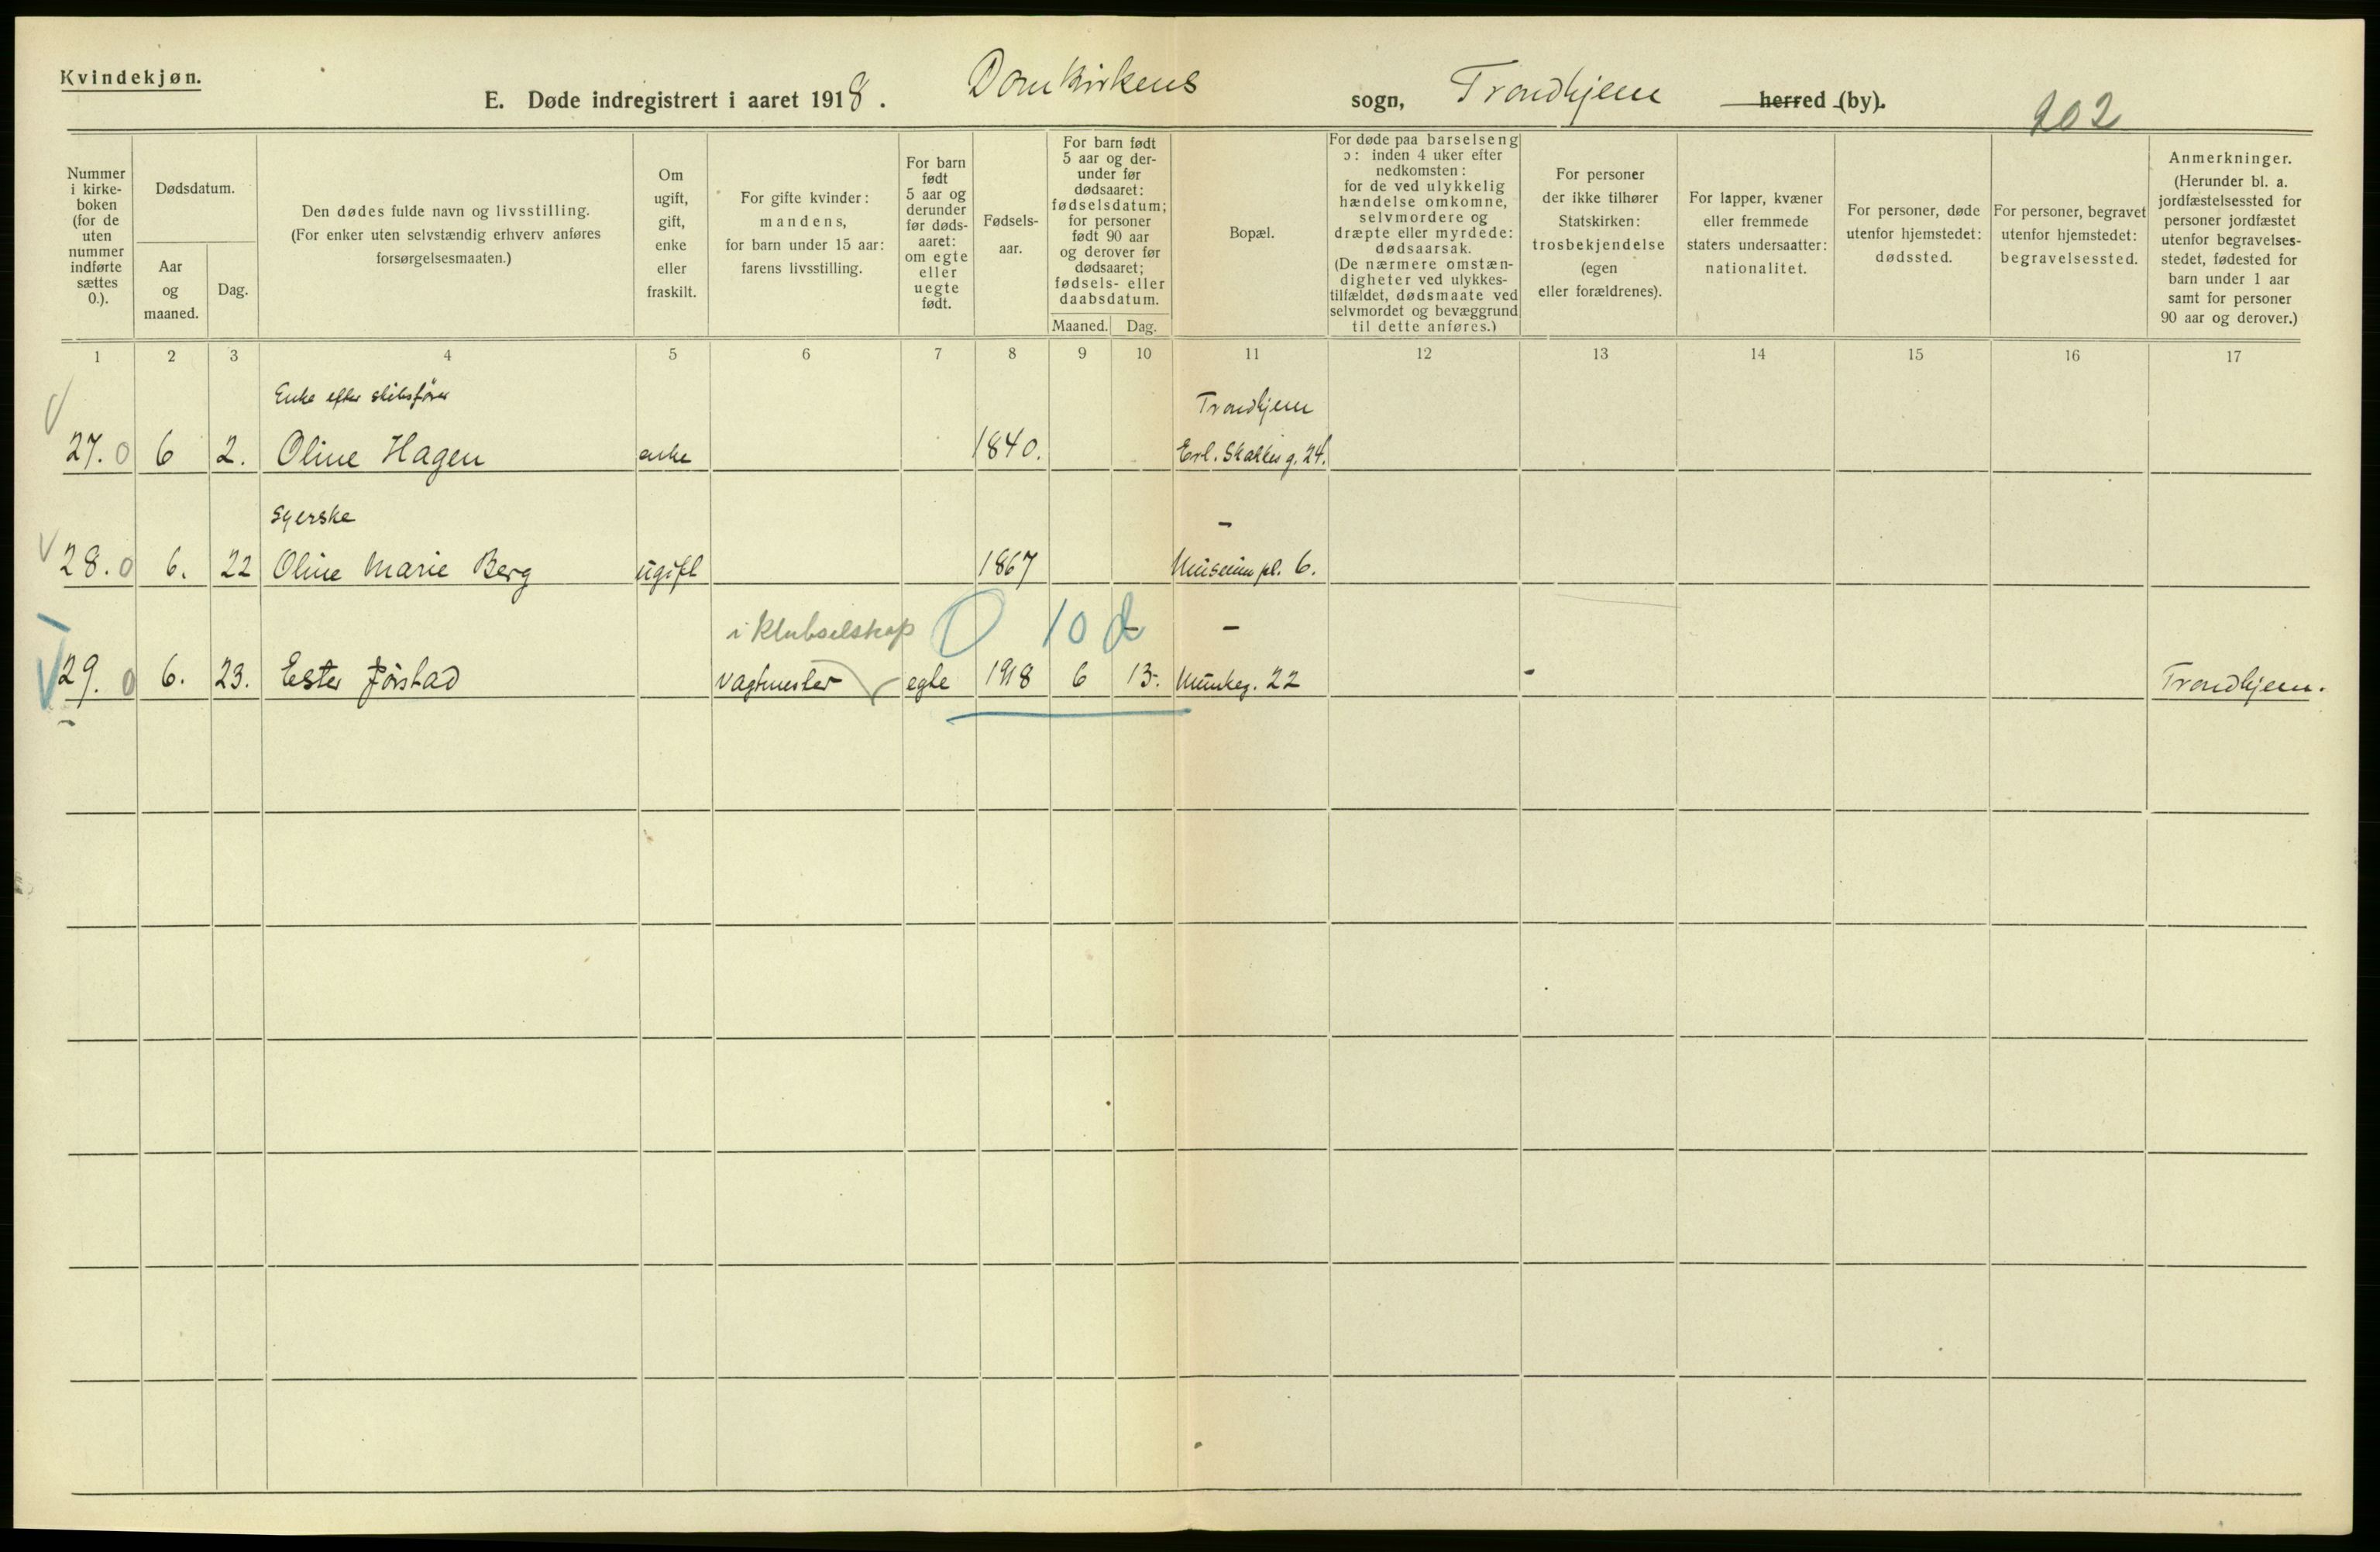 Kvindekjøn.
E. Døde indregistrert i aaret 1918. Domkirkens sogn, Trondhjem herred (by).
202
Nummer i kirke-boken (for de uten nummer indførte sættes 0.).
Dødsdatum.
Aar og maaned.
Dag.
Den dødes fulde navn og livsstilling.
(For enker uten selvstændig erhverv anføres
forsørgelsesmaaten.)
Om ugift, gift, enke eller fraskilt.
For gifte kvinder:
mandens,
for barn under 15 aar:
farens livsstilling.
For barn født 5 aar og derunder før døds-aaret: om egte eller uegte født.
Fødsels-aar.
For barn født 5 aar og der-under før dødsaaret: fødselsdatum; for personer født 90 aar og derover før dødsaaret; fødsels- eller daabsdatum.
Maaned.
Dag.
Bopæl.
For døde paa barselseng
ɔ: inden 4 uker efter
nedkomsten:
for de ved ulykkelig
hændelse omkomne,
selvmordere og
dræpte eller myrdede:
dødsaarsak.
(De nærmere omstæn-
digheter ved ulykkes-
tilfældet, dødsmaate ved
selvmordet og bevæggrund
til dette anføres.)
For personer
der ikke tilhører
Statskirken:
trosbekjendelse
(egen
eller forældrenes).
For lapper, kvæner
eller fremmede
staters undersaatter:
nationalitet.
For personer, døde
utenfor hjemstedet:
dødssted.
For personer, begravet
utenfor hjemstedet:
begravelsessted.
Anmerkninger.
(Herunder bl. a.
jordfæstelsessted for
personer jordfæstet
utenfor begravelses-
stedet, fødested for
barn under 1 aar
samt for personer
90 aar og derover.)
1 2 3 4 5 6 7 8 9 10 11 12 13 14 15 16 17
Enke efter skibsfører Trondhjem
27. 0 6 2. Oline Hagen enke 1840. Erl. Skakkes g. 24.
Syerske -
28. 0 6. 22 Oline Marie Berg ugift 1867 Museum pl. 6.
i Klubselskap 0 10 d -
29. 0 6. 23. Ester Jørstad vagtmester egte 1918 6 13. Munkeg. 22 - Trondhjem.